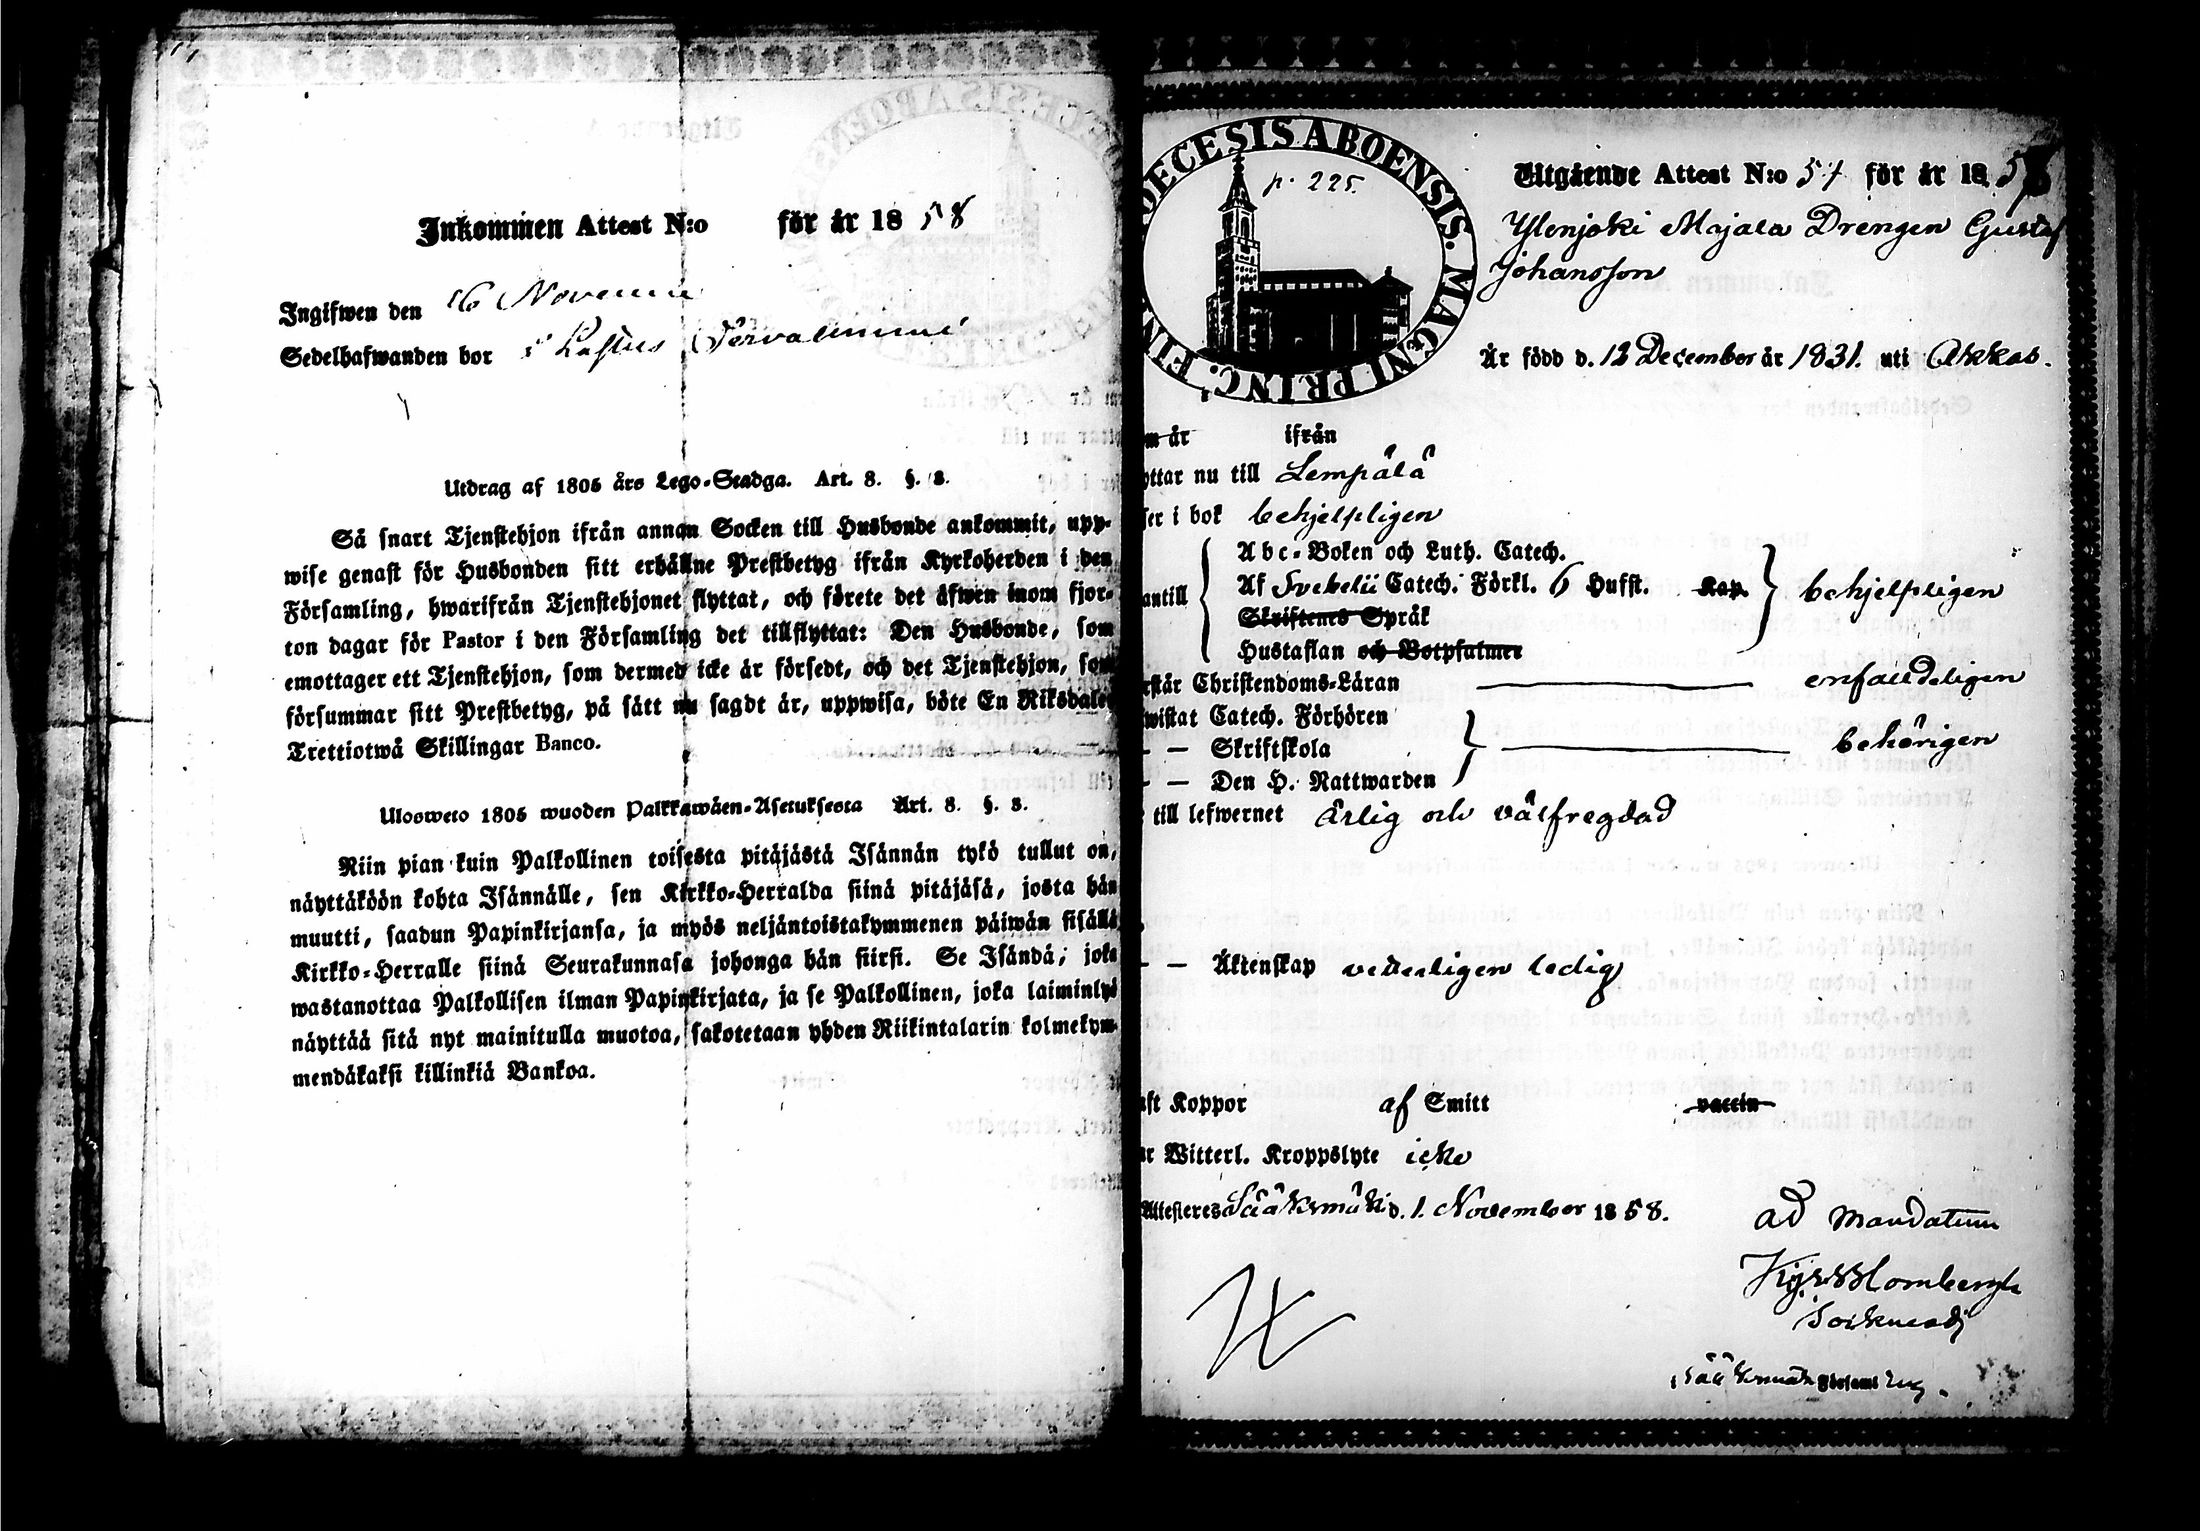 Inkommen Attest N:o för år 1858
Ingifwen den 16
Sedelhafwanden bor i
Utdrag af 1805 års Lego-Stadga. Art. 8. §. 8.
Så snart Tjenstehjon ifrån annan Socken till Husbonde ankommit, upp-
wise genast för Husbonden sitt erhållne Prestbetyg ifrån Kyrkoherden i den
Församling, hwarifrån Tjenstehjonet flyttat, och förete det äfwen inom fjor-
ton dagar för Pastor i den Församling det tillflyttat: Den Husbonde, som
emottager ett Tjenstehjon, som dermed icke är försedt, och det Tjenstehjon, som
försummar sitt Prestbetyg, på sätt nu sagdt är, uppwisa, böte En Riksdaler
Trettiotwå Skillingar Banco.
Ulosweto 1805 wuoden Palkkawäen-Asetuksesta Art. 8. §. 8.
Niin pian kuin Palkollinen toisesta pitäjästä Isännän tykö tullut on,
näyttäköön kohta Isännälle, sen Kirkko-Herralda siinä pitäjäsä, josta hän
muutti, saadun Papinkirjansa, ja myös neljäntoistakymmenen päiwän sisällä
Kirkko-Herralle siinä Seurakunnasa johonga hän siirsi. Se Isändä, joka
wastanottaa Palkollisen ilman Papinkirjata, ja se Palkollinen, joka laiminlyö
näyttää sitä nyt mainitulla muotoa, sakotetaan yhden Riikintalarin kolmekym-
mendäkaksi killinkiä Bankoa.
DECESIS ABOENSIS. MAGNI PRINC. FIN
p. 225.
Utgående Attest N:o 57 för år 1858
Ylenjoki Majala Drengen Gustaf
Johansson
Är född d. 12 December år 1831. uti Akkas.
m år ifrån
yttar nu till Lempälä
ser i bok behjelpligen
antill
Abc-Boken och Luth. Catech.
Af Svebelii Catech. Förkl. 6 Hufst. Kap.
Skriftenes Språk
Hustaflan och Botpsalmer
behjelpligen
rstår Christendoms-Läran enfaldeligen
wistat Catech. Förhören
— — Skriftskola
— — Den H. Nattwarden
behörigen
till lefwernet ärlig och välfregdad
— — Äktenskap veterligen ledig
aft Koppor af Smitt vaccin
ar Witterl. Kroppslyte icke
Attesteres Sääksmäki d. 1. November 1858.
ad mandatum
Sääksmäki Församl